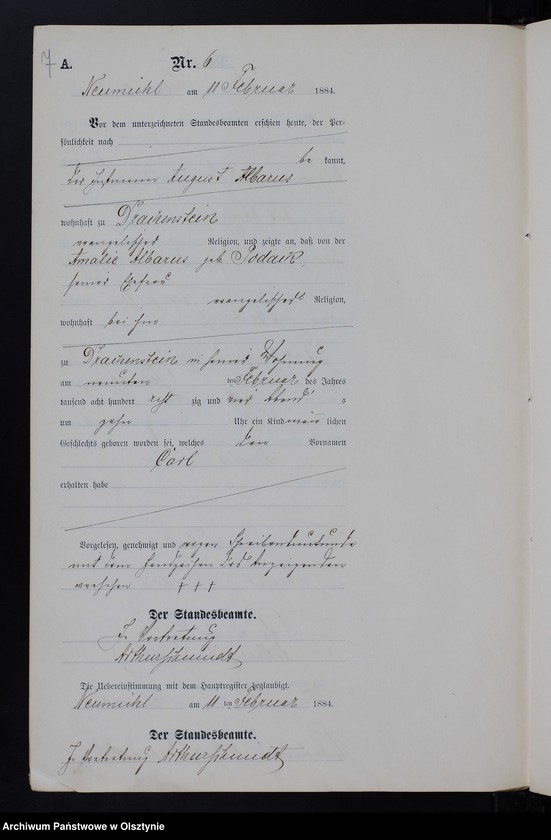 7
A. Nr. 6
Neumühl am 11 Februar 1884.
Vor dem unterzeichneten Standesbeamten erschien heute, der Per-
sönlichkeit nach
be kannt,
der August Albarus
wohnhaft zu Drachenstein
evangelischer Religion, und zeigte an, daß von der
Amalie Albarus geb. Podack
seiner Ehefrau
evangelischer Religion,
wohnhaft bei ihm
zu Drachenstein in seiner Wohnung
am neunten ten Februar des Jahres
tausend acht hundert acht zig und vier Abend s
um zehn Uhr ein Kind männ lichen
Geschlechts geboren worden sei, welches den Vornamen
Carl
erhalten habe
Vorgelesen, genehmigt und wegen Schreibensunkunde
mit dem Handzeichen des Anzeigenden
versehen + + +
Der Standesbeamte.
In Vertretung
Arthur Schmidt
Die Uebereinstimmung mit dem Hauptregister beglaubigt.
Neumühl am 11 ten Februar 1884.
Der Standesbeamte.
In Vertretung Arthur Schmidt
Archiwum Państwowe w Olsztynie